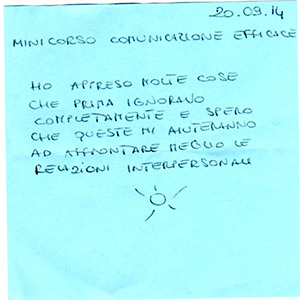 20.09.14
MINICORSO COMUNICAZIONE EFFICACE
HO APPRESO MOLTE COSE
CHE PRIMA IGNORAVO
COMPLETAMENTE E SPERO
CHE QUESTE MI AIUTERANNO
AD AFFRONTARE MEGLIO LE
RELAZIONI INTERPERSONALI